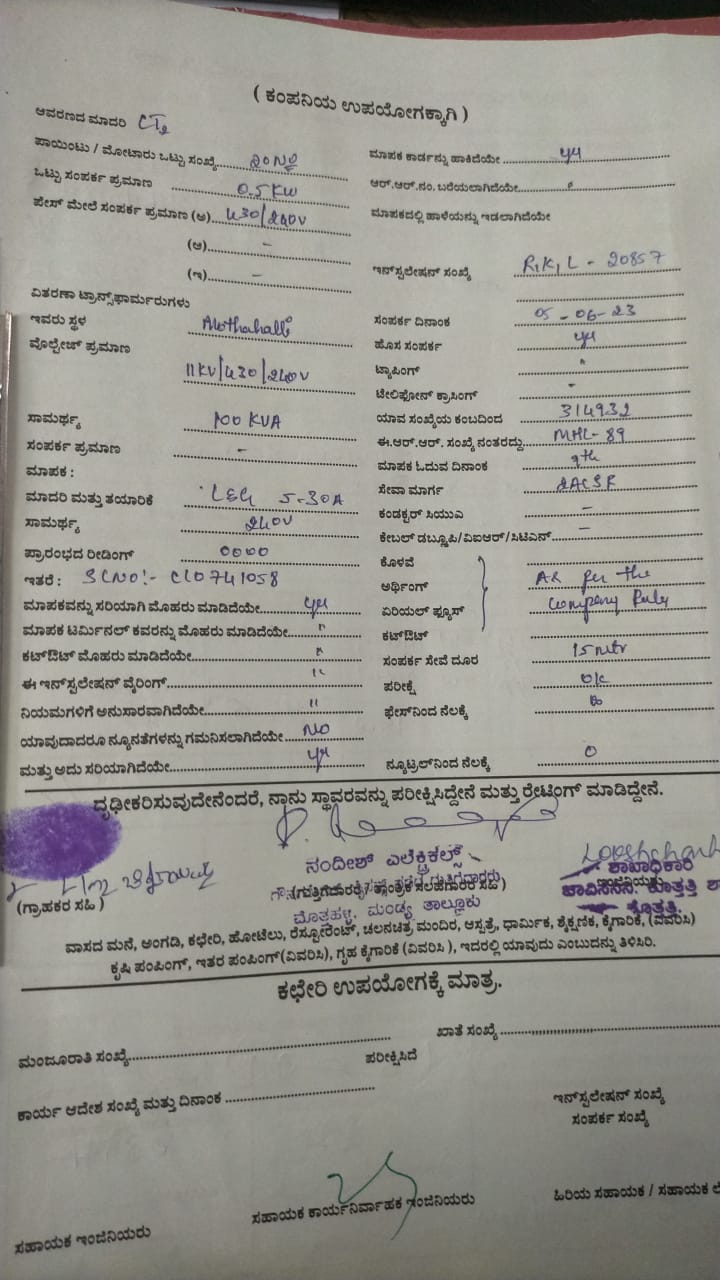 ( ಕಂಪನಿಯ ಉಪಯೋಗಕ್ಕಾಗಿ )
ಆವರಣದ ಮಾದರಿ
ಪಾಯಿಂಟು / ಮೋಟಾರು ಒಟ್ಟು ಸಂಖ್ಯೆ
ಮಾಪಕ ಕಾರ್ಡನ್ನು ಹಾಕಿದೆಯೇ
ಒಟ್ಟು ಸಂಪರ್ಕ ಪ್ರಮಾಣ 0.5 KW
ಆರ್.ಆರ್.ನಂ. ಬರೆಯಲಾಗಿದೆಯೇ
ಪೇಸ್ ಮೇಲೆ ಸಂಪರ್ಕ ಪ್ರಮಾಣ (ಅ) 430/240V
ಮಾಪಕದಲ್ಲಿ ಹಾಳೆಯನ್ನು ಇಡಲಾಗಿದೆಯೇ
(ಆ) -
(ಇ) -
ಇನ್‌ಸ್ಟಲೇಷನ್ ಸಂಖ್ಯೆ R,K,L - 20857
ವಿತರಣಾ ಟ್ರಾನ್ಸ್‌ಫಾರ್ಮರುಗಳು
ಇವರು ಸ್ಥಳ
ಸಂಪರ್ಕ ದಿನಾಂಕ 05-06-23
ವೋಲ್ಟೇಜ್ ಪ್ರಮಾಣ 11KV/430/240V
ಹೊಸ ಸಂಪರ್ಕ
ಟ್ಯಾಪಿಂಗ್
ಟೆಲಿಫೋನ್ ಕ್ರಾಸಿಂಗ್ -
ಸಾಮರ್ಥ್ಯ 100 KVA
ಯಾವ ಸಂಖ್ಯೆಯ ಕಂಬದಿಂದ 314932
ಸಂಪರ್ಕ ಪ್ರಮಾಣ -
ಈ.ಆರ್.ಆರ್. ಸಂಖ್ಯೆ ನಂತರದ್ದು MHL-89
ಮಾಪಕ :
ಮಾಪಕ ಓದುವ ದಿನಾಂಕ 9th
ಮಾದರಿ ಮತ್ತು ತಯಾರಿಕೆ L&G 5-30A
ಸೇವಾ ಮಾರ್ಗ 2ACSR
ಸಾಮರ್ಥ್ಯ 240V
ಕಂಡಕ್ಟರ್ ಸಿಯುಎ -
ಪ್ರಾರಂಭದ ರೀಡಿಂಗ್ 0000
ಕೇಬಲ್ ಡಬ್ಲ್ಯೂಪಿ/ವಿಐಆರ್/ಸಿಟಿಎಸ್ -
ಇತರೆ : SLNO:- CL0741058
ಕೊಳವೆ
ಅರ್ಥಿಂಗ್ As per the
ಮಾಪಕವನ್ನು ಸರಿಯಾಗಿ ಮೊಹರು ಮಾಡಿದೆಯೇ
ಏರಿಯಲ್ ಫ್ಯೂಸ್ Company Rules
ಮಾಪಕ ಟರ್ಮಿನಲ್ ಕವರನ್ನು ಮೊಹರು ಮಾಡಿದೆಯೇ "
ಕಟ್‌ಔಟ್
ಕಟ್‌ಔಟ್ ಮೊಹರು ಮಾಡಿದೆಯೇ "
ಸಂಪರ್ಕ ಸೇವೆ ದೂರ 15 mtr
ಈ ಇನ್‌ಸ್ಟಲೇಷನ್ ವೈರಿಂಗ್ "
ಪರೀಕ್ಷೆ ok
ನಿಯಮಗಳಿಗೆ ಅನುಸಾರವಾಗಿದೆಯೇ "
ಫೇಸ್‌ನಿಂದ ನೆಲಕ್ಕೆ
ಯಾವುದಾದರೂ ನ್ಯೂನತೆಗಳನ್ನು ಗಮನಿಸಲಾಗಿದೆಯೇ NO
ಮತ್ತು ಅದು ಸರಿಯಾಗಿದೆಯೇ
ನ್ಯೂಟ್ರಲ್‌ನಿಂದ ನೆಲಕ್ಕೆ 0
ದೃಢೀಕರಿಸುವುದೇನೆಂದರೆ, ನಾನು ಸ್ಥಾವರವನ್ನು ಪರೀಕ್ಷಿಸಿದ್ದೇನೆ ಮತ್ತು ರೇಟಿಂಗ್ ಮಾಡಿದ್ದೇನೆ.
ನಂದೀಶ್ ಎಲೆಕ್ಟ್ರಿಕಲ್ಸ್
ಶಾಖಾಧಿಕಾರಿ
(ಗ್ರಾಹಕರ ಸಹಿ)
ಮೊತ್ತಹಳ್ಳಿ, ಮಂಡ್ಯ ತಾಲ್ಲೂಕು
ಕೊತ್ತತ್ತಿ.
ವಾಸದ ಮನೆ, ಅಂಗಡಿ, ಕಛೇರಿ, ಹೋಟೆಲು, ರೆಸ್ಟೋರೆಂಟ್, ಚಲನಚಿತ್ರ ಮಂದಿರ, ಆಸ್ಪತ್ರೆ, ಧಾರ್ಮಿಕ, ಶೈಕ್ಷಣಿಕ, ಕೈಗಾರಿಕೆ, (ವಿವರಿಸಿ)
ಕೃಷಿ ಪಂಪಿಂಗ್, ಇತರ ಪಂಪಿಂಗ್(ವಿವರಿಸಿ), ಗೃಹ ಕೈಗಾರಿಕೆ (ವಿವರಿಸಿ ), ಇದರಲ್ಲಿ ಯಾವುದು ಎಂಬುದನ್ನು ತಿಳಿಸಿರಿ.
ಕಛೇರಿ ಉಪಯೋಗಕ್ಕೆ ಮಾತ್ರ.
ಮಂಜೂರಾತಿ ಸಂಖ್ಯೆ
ಖಾತೆ ಸಂಖ್ಯೆ
ಪರೀಕ್ಷಿಸಿದೆ
ಕಾರ್ಯ ಆದೇಶ ಸಂಖ್ಯೆ ಮತ್ತು ದಿನಾಂಕ
ಇನ್‌ಸ್ಟಲೇಷನ್ ಸಂಖ್ಯೆ
ಸಂಪರ್ಕ ಸಂಖ್ಯೆ
ಸಹಾಯಕ ಇಂಜಿನಿಯರು
ಸಹಾಯಕ ಕಾರ್ಯನಿರ್ವಾಹಕ ಇಂಜಿನಿಯರು
ಹಿರಿಯ ಸಹಾಯಕ / ಸಹಾಯಕ